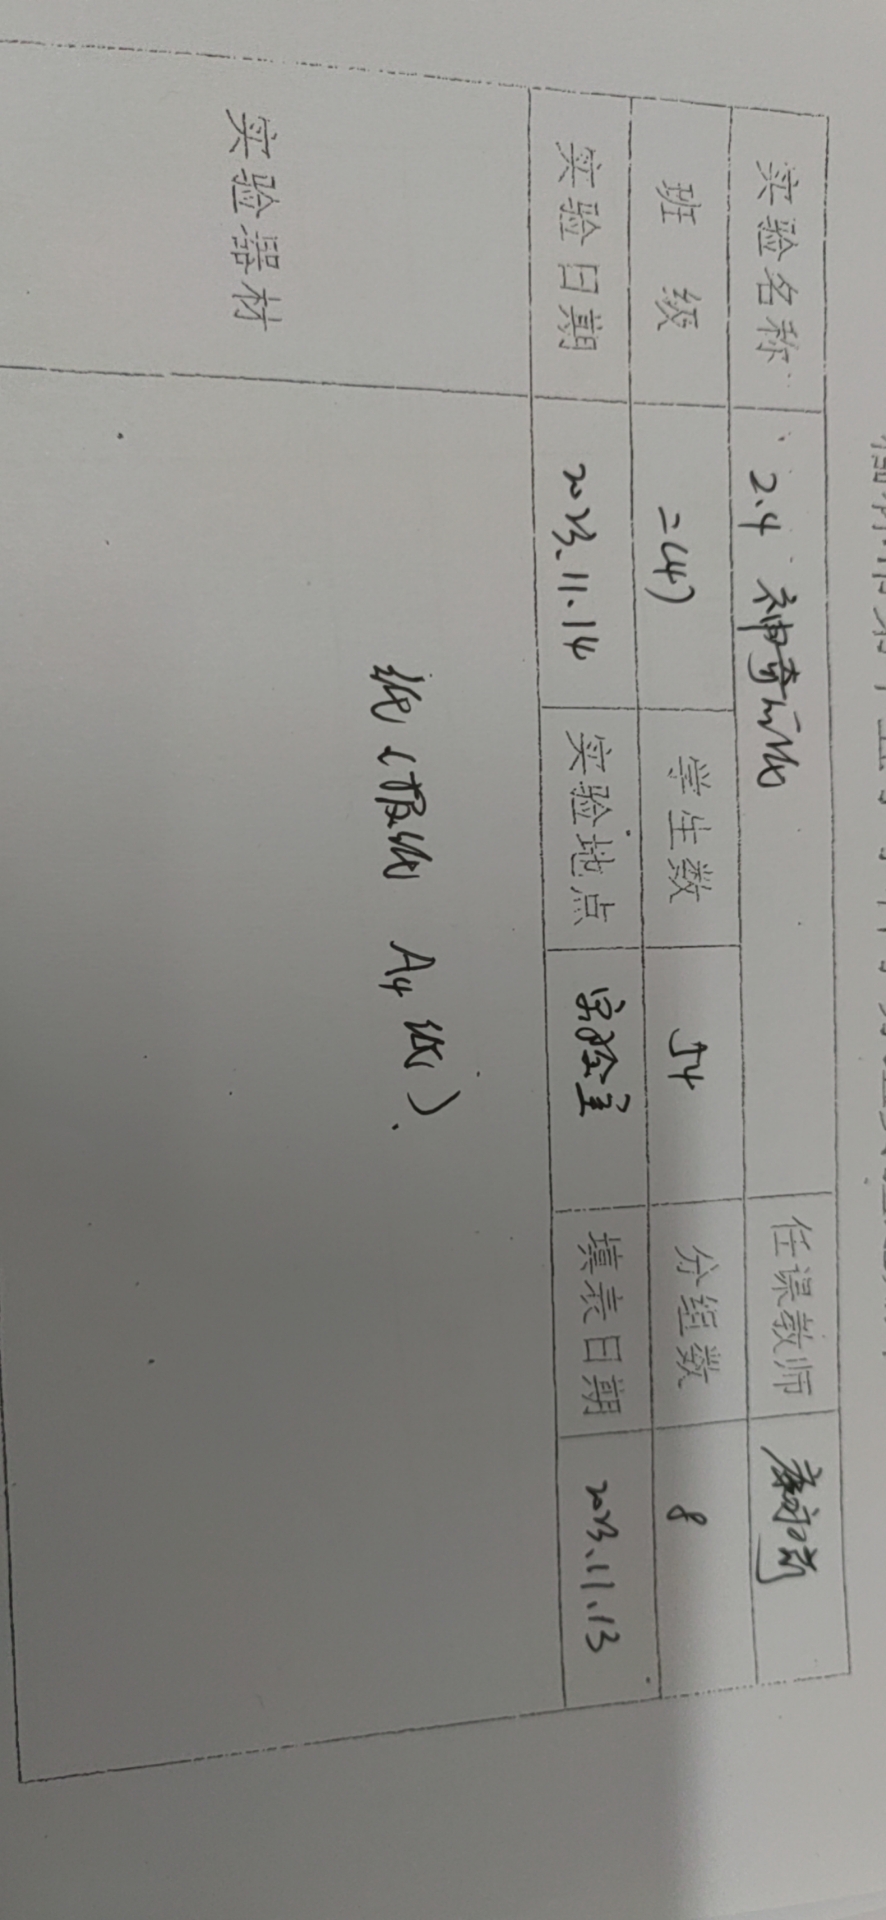 实验名称 2.4 神奇的纸 任课教师
班级 二(4) 学生数 54 分组数 8
实验日期 2023.11.14 实验地点 实验室 填表日期 2023.11.13
实验器材 纸(报纸 A4纸).